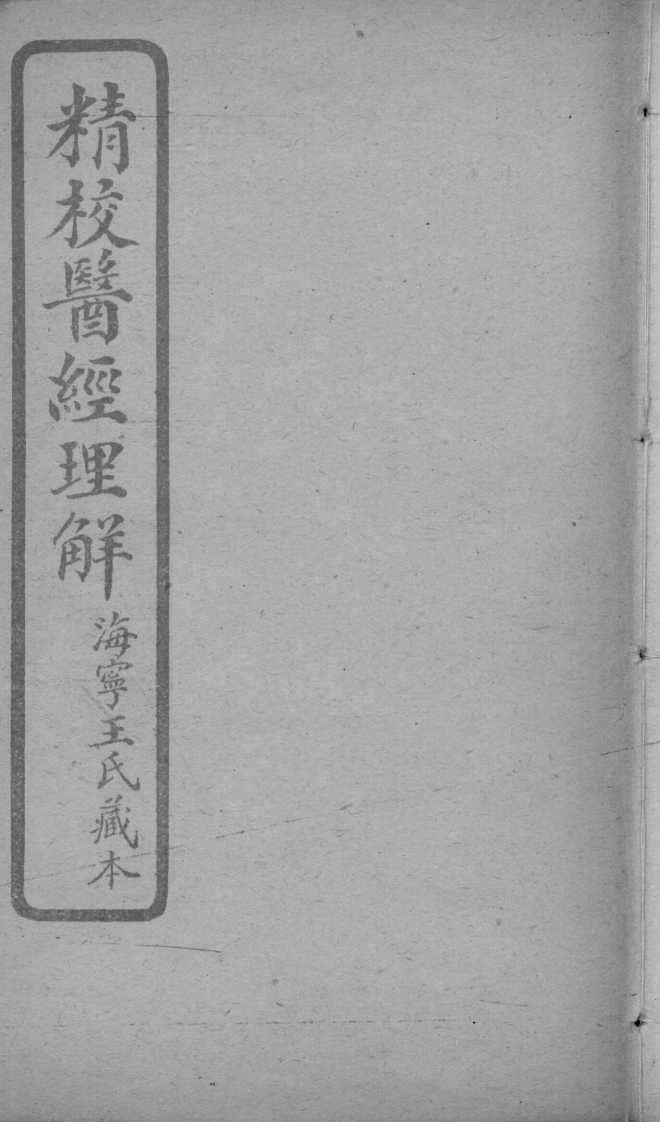 精校醫經理解
海寧王氏藏本